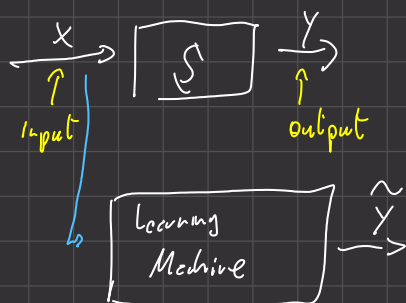 X
Y
S
Input
Output
Learning
Machine
Ỹ